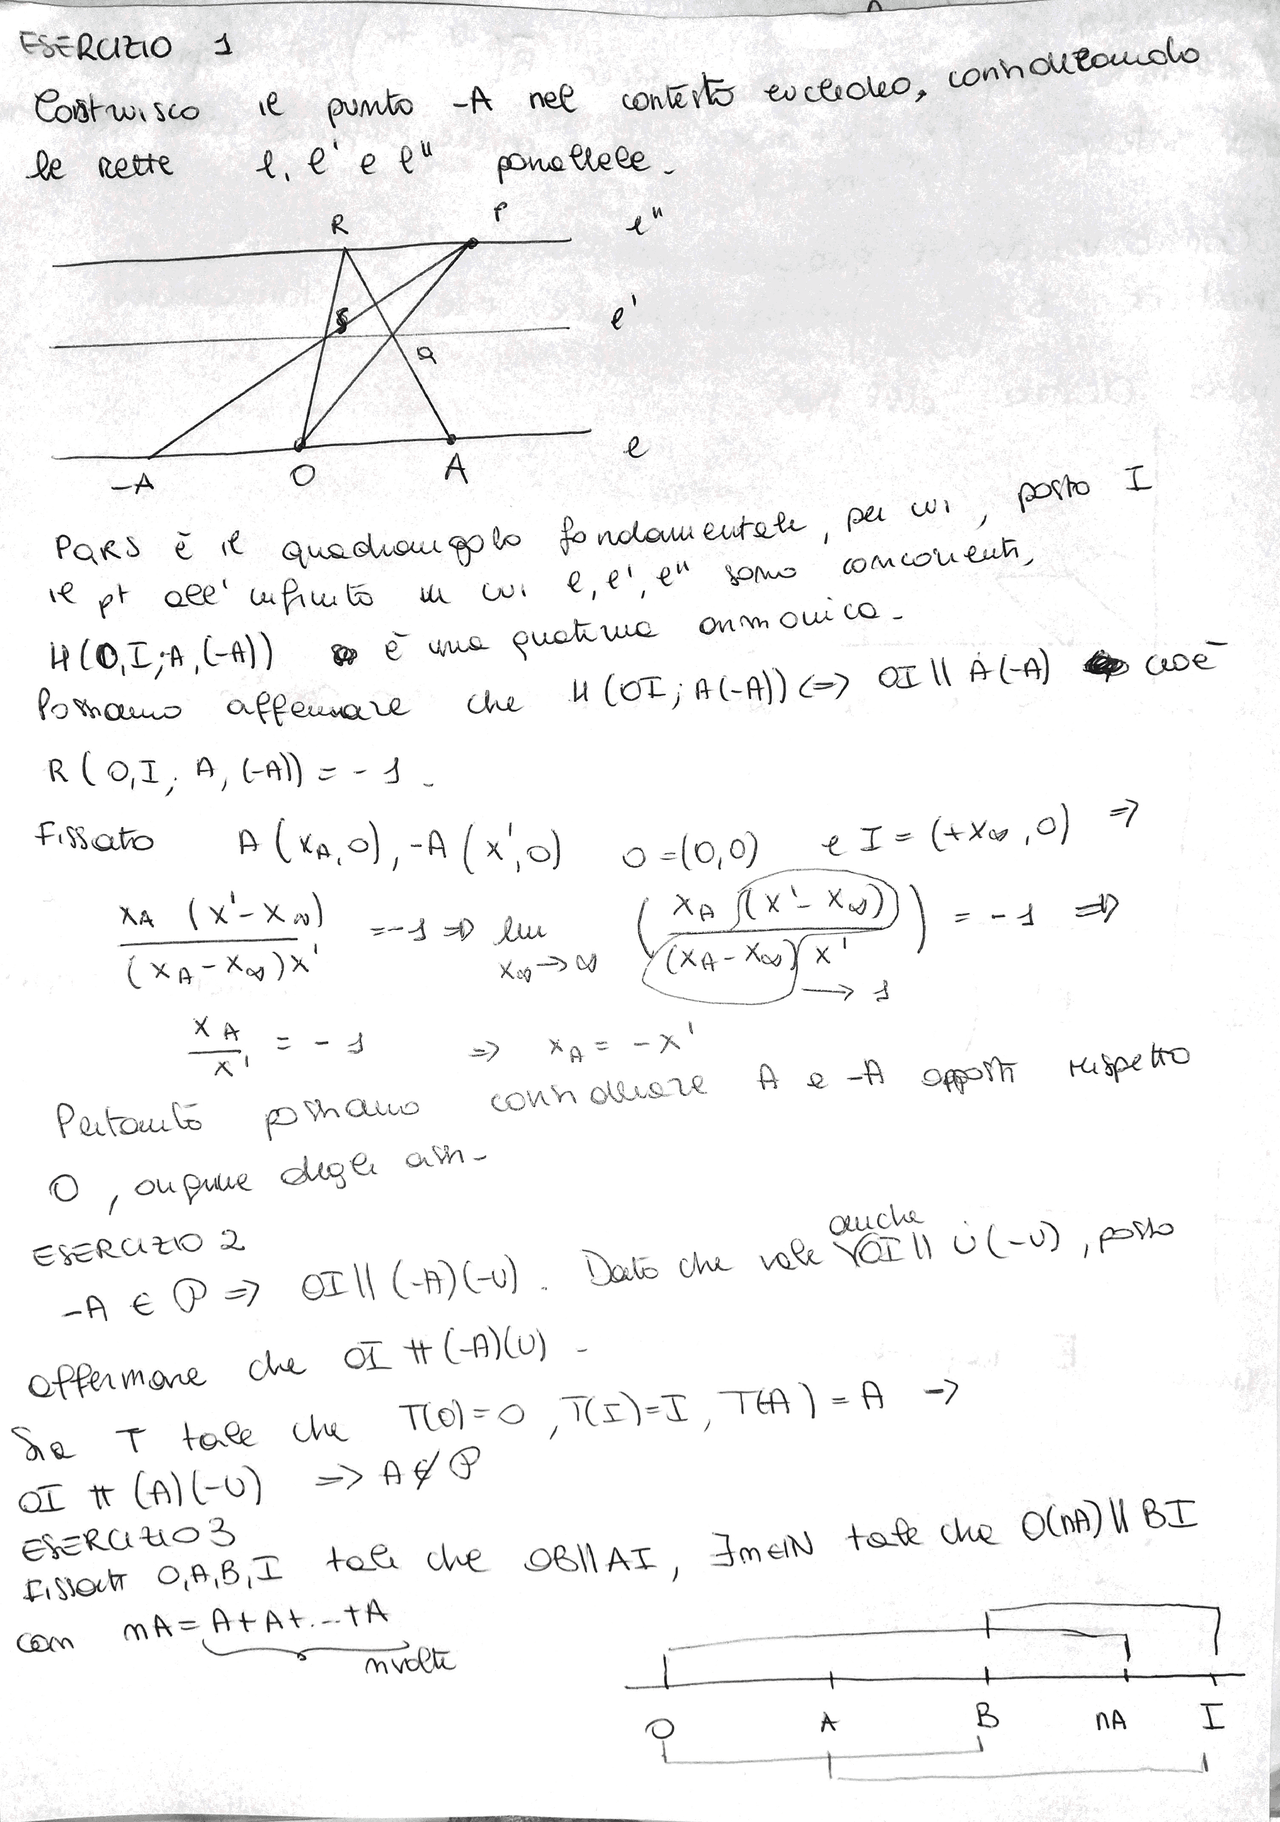 ESERCIZIO 1
Costruisco il punto -A nel contesto euclideo, considerando
le rette l, l' e l" parallele.
R P l"
S l'
Q
-A O A l
PQRS è il quadrangolo fondamentale, per cui, posto I
il pt all'infinito in cui l, l', l" sono concorrenti,
H(O,I;A,(-A)) è una quaterna armonica.
Possiamo affermare che H(OI; A(-A)) <=> OI || A(-A) cioè
R(O,I; A, (-A)) = -1.
Fissato A(x_A,0), -A(x',0) O=(0,0) e I=(+x_∞,0) =>
x_A (x'-x_∞) / (x_A-x_∞)x' = -1 => lim x_∞→∞ ( x_A (x'-x_∞) / (x_A-x_∞) x' ) = -1 =>
→ 1
x_A / x' = -1 => x_A = -x'
Pertanto possiamo considerare A e -A opposti rispetto
O, origine degli assi.
ESERCIZIO 2
-A ∈ P => OI || (-A)(-U). Dato che vale anche OI || U(-U), posso
affermare che OI ∦ (-A)(U).
Sia T tale che T(O)=O, T(I)=I, T(-A)=A ->
OI ∦ (A)(-U) => A ∉ P
ESERCIZIO 3
Fissati O,A,B,I tali che OB||AI, ∃n∈N tale che O(nA)||BI
con nA = A+A+...+A
n volte
O A B nA I